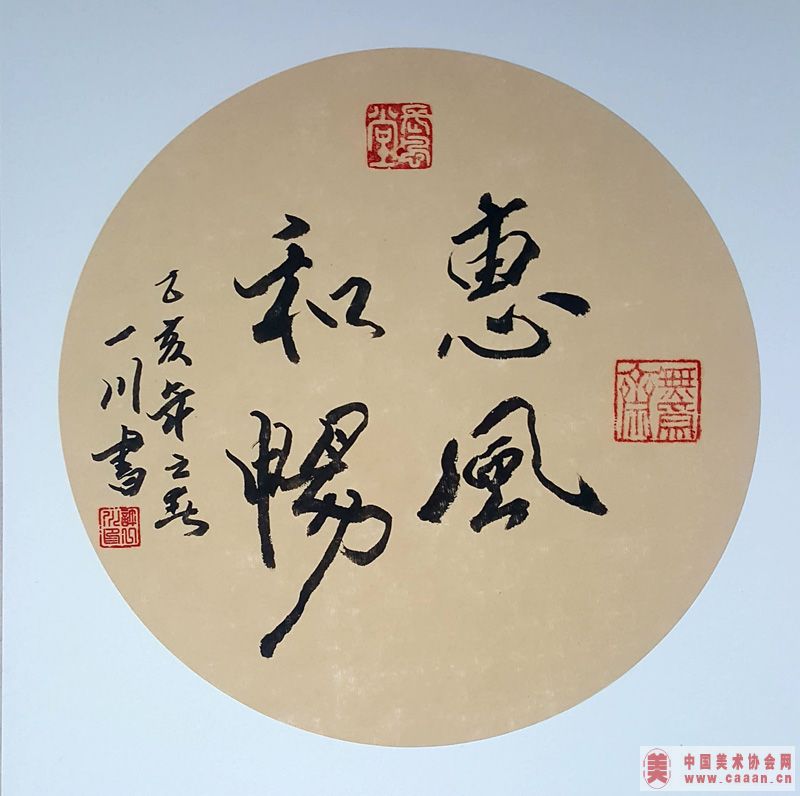 惠風
和暢
己亥年之春
一川書
無為齋
美 中国美术协会网
www.caaan.cn